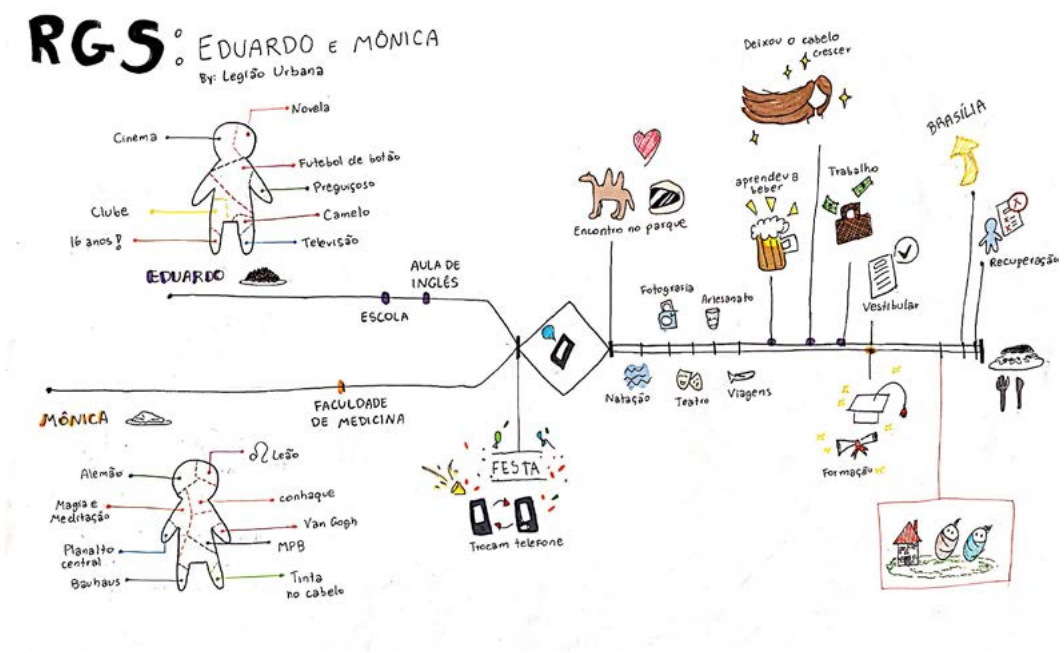 RGS: EDUARDO E MÔNICA
By: Legião Urbana
Novela
Cinema
Futebol de botão
Preguiçoso
Clube
Camelo
16 anos!
Televisão
EDUARDO
AULA DE
INGLÊS
ESCOLA
MÔNICA
FACULDADE
DE MEDICINA
Alemão
Leão
Magia e
Meditação
conhaque
Van Gogh
Planalto
central
MPB
Bauhaus
Tinta
no cabelo
FESTA
Trocam telefone
Encontro no parque
Fotografia
Artesanato
Natação
Teatro
Viagens
aprendeu a
beber
Deixou o cabelo
crescer
Trabalho
Vestibular
Formação
BRASÍLIA
Recuperação